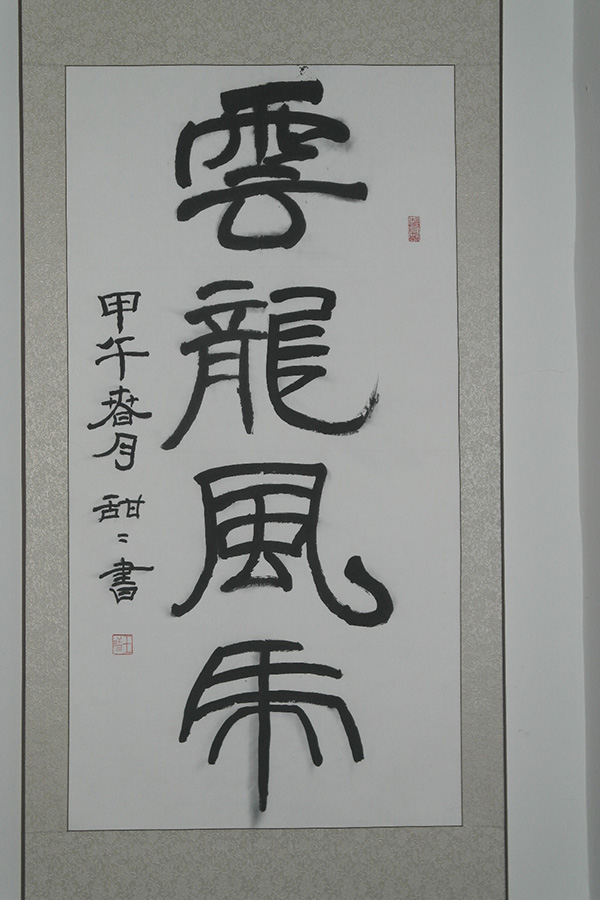 雲龍風虎
甲午春月 甜〻書